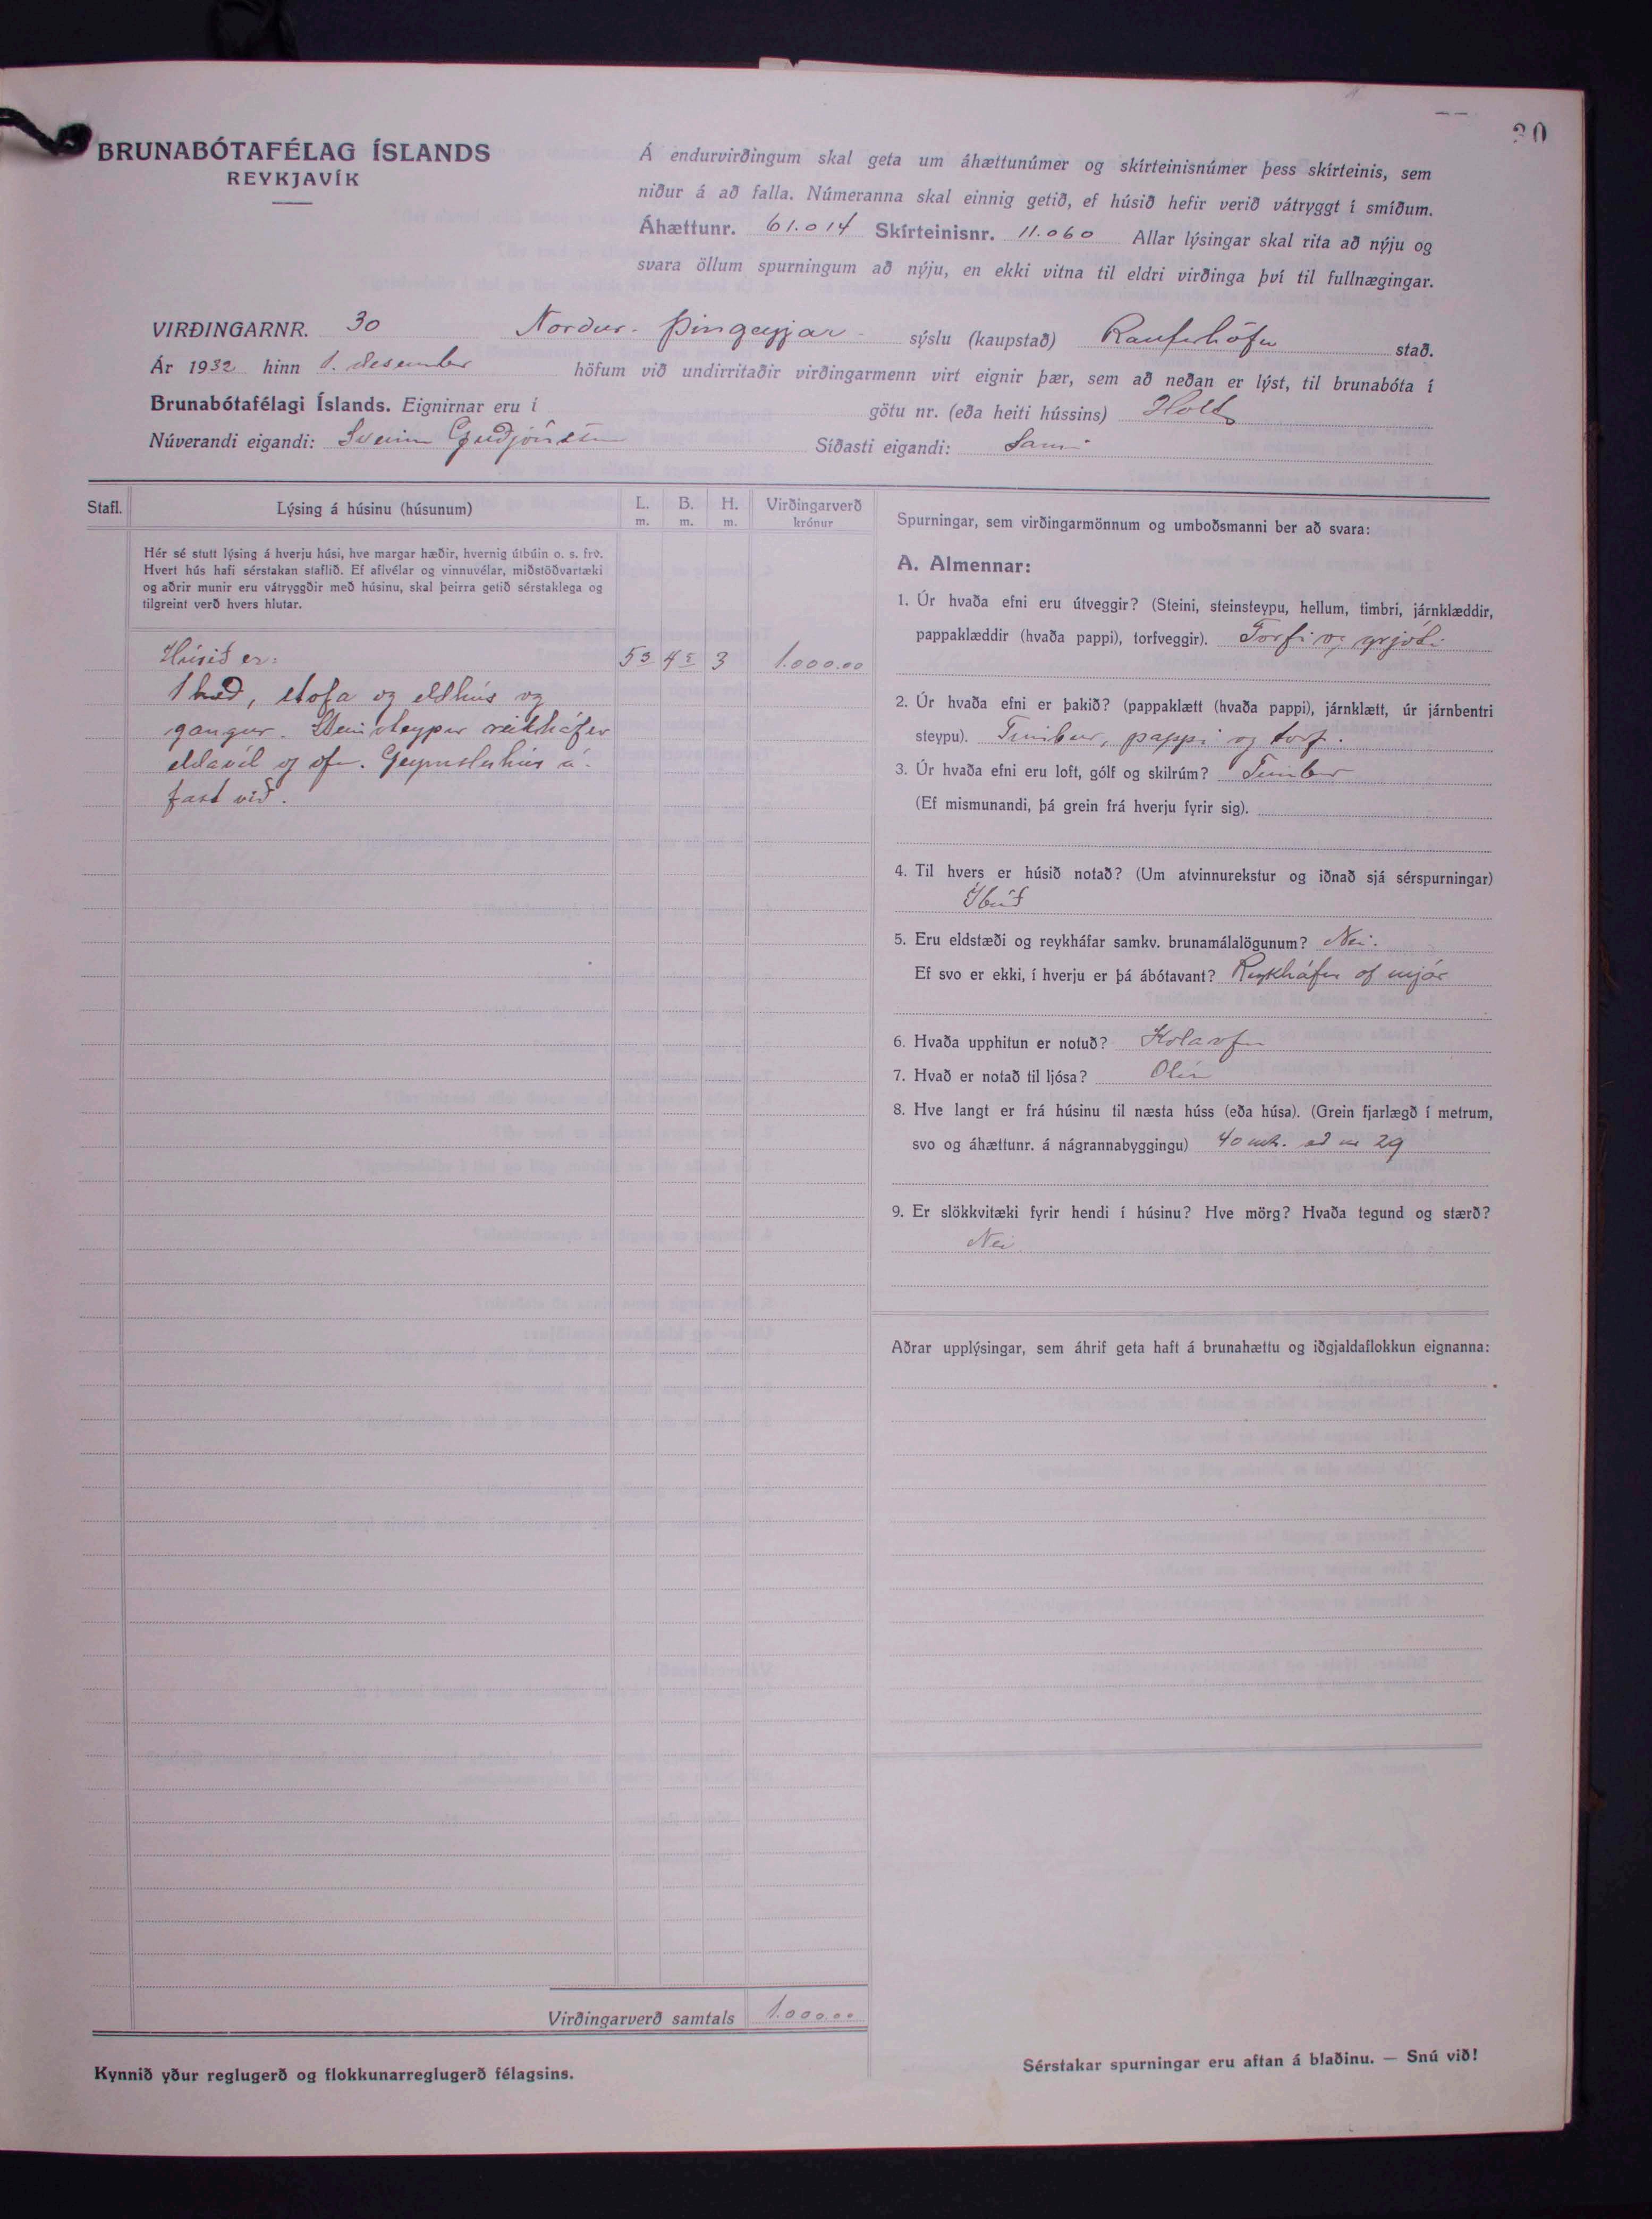 30
BRUNABÓTAFÉLAG ÍSLANDS
REYKJAVÍK
Á endurvirðingum skal geta um áhættunúmer og skírteinisnúmer þess skírteinis, sem
niður á að falla. Númeranna skal einnig getið, ef húsið hefir verið vátryggt í smíðum.
Áhættunr. 61.014 Skírteinisnr. 11.060 Allar lýsingar skal rita að nýju og
svara öllum spurningum að nýju, en ekki vitna til eldri virðinga því til fullnægingar.
VIRÐINGARNR. 30 Norður-Þingeyjar- sýslu (kaupstað) Raufarhöfn stað.
Ár 1932 hinn 1. desember höfum við undirritaðir virðingarmenn virt eignir þær, sem að neðan er lýst, til brunabóta í
Brunabótafélagi Íslands. Eignirnar eru í götu nr. (eða heiti hússins) Holt
Núverandi eigandi: Sveinn Guðjónsson Síðasti eigandi: Sami
Stafl. Lýsing á húsinu (húsunum) L. m. B. m. H. m. Virðingarverð krónur
Hér sé stutt lýsing á hverju húsi, hve margar hæðir, hvernig útbúin o. s. frv.
Hvert hús hafi sérstakan staflið. Ef aflvélar og vinnuvélar, miðstöðvartæki
og aðrir munir eru vátryggðir með húsinu, skal þeirra getið sérstaklega og
tilgreint verð hvers hlutar.
Húsið er: 5 3 4 5 3 1.000.00
1 hæð, stofa og eldhús og
gangur. Steinsteypur reikháfur
eldavél og ofn. Geymsluhús á-
fast við.
Virðingarverð samtals 1.000.00
Kynnið yður reglugerð og flokkunarreglugerð félagsins.
Spurningar, sem virðingarmönnum og umboðsmanni ber að svara:
A. Almennar:
1. Úr hvaða efni eru útveggir? (Steini, steinsteypu, hellum, timbri, járnklæddir,
pappaklæddir (hvaða pappi), torfveggir). Torfi og grjóti
2. Úr hvaða efni er þakið? (pappaklætt (hvaða pappi), járnklætt, úr járnbentri
steypu). Timbur, pappi og torf.
3. Úr hvaða efni eru loft, gólf og skilrúm? Timbur
(Ef mismunandi, þá grein frá hverju fyrir sig).
4. Til hvers er húsið notað? (Um atvinnurekstur og iðnað sjá sérspurningar)
Íbúð
5. Eru eldstæði og reykháfar samkv. brunamálalögunum? Nei.
Ef svo er ekki, í hverju er þá ábótavant? Reykháfur of mjór
6. Hvaða upphitun er notuð? Kolaofn
7. Hvað er notað til ljósa? Olía
8. Hve langt er frá húsinu til næsta húss (eða húsa). (Grein fjarlægð í metrum,
svo og áhættunr. á nágrannabyggingu) 40 mtr. að nr 29
9. Er slökkvitæki fyrir hendi í húsinu? Hve mörg? Hvaða tegund og stærð?
Nei
Aðrar upplýsingar, sem áhrif geta haft á brunahættu og iðgjaldaflokkun eignanna:
Sérstakar spurningar eru aftan á blaðinu. — Snú við!